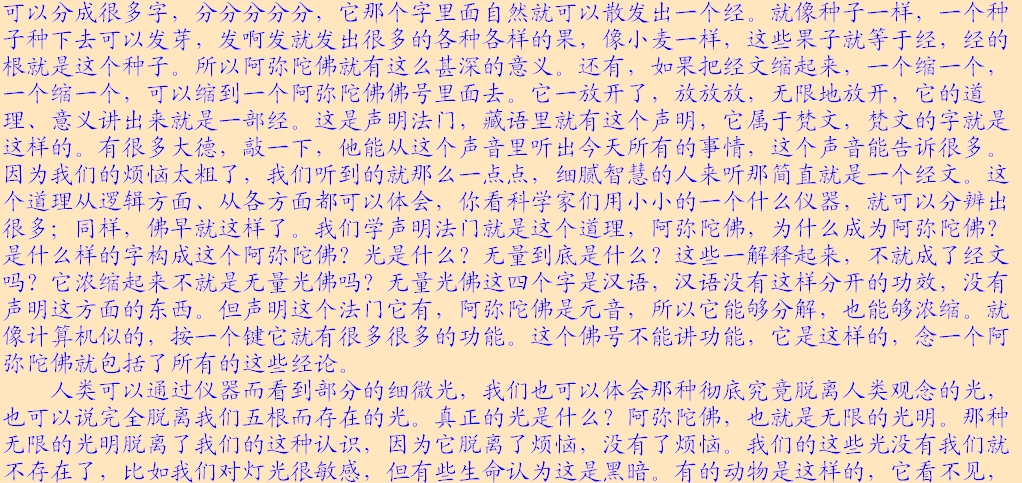 可以分成很多字，分分分分分，它那个字里面自然就可以散发出一个经。就像种子一样，一个种
子种下去可以发芽，发啊发就发出很多的各种各样的果，像小麦一样，这些果子就等于经，经的
根就是这个种子。所以阿弥陀佛就有这么甚深的意义。还有，如果把经文缩起来，一个缩一个，
一个缩一个，可以缩到一个阿弥陀佛佛号里面去。它一放开了，放放放，无限地放开，它的道
理、意义讲出来就是一部经。这是声明法门，藏语里就有这个声明，它属于梵文，梵文的字就是
这样的。有很多大德，敲一下，他能从这个声音里听出今天所有的事情，这个声音能告诉很多。
因为我们的烦恼太粗了，我们听到的就那么一点点，细腻智慧的人来听那简直就是一个经文。这
个道理从逻辑方面、从各方面都可以体会，你看科学家们用小小的一个什么仪器，就可以分辨出
很多；同样，佛早就这样了。我们学声明法门就是这个道理，阿弥陀佛，为什么成为阿弥陀佛？
是什么样的字构成这个阿弥陀佛？光是什么？无量到底是什么？这些一解释起来，不就成了经文
吗？它浓缩起来不就是无量光佛吗？无量光佛这四个字是汉语，汉语没有这样分开的功效，没有
声明这方面的东西。但声明这个法门它有，阿弥陀佛是元音，所以它能够分解，也能够浓缩。就
像计算机似的，按一个键它就有很多很多的功能。这个佛号不能讲功能，它是这样的，念一个阿
弥陀佛就包括了所有的这些经论。
人类可以通过仪器而看到部分的细微光，我们也可以体会那种彻底究竟脱离人类观念的光，
也可以说完全脱离我们五根而存在的光。真正的光是什么？阿弥陀佛，也就是无限的光明。那种
无限的光明脱离了我们的这种认识，因为它脱离了烦恼，没有了烦恼。我们的这些光没有我们就
不存在了，比如我们对灯光很敏感，但有些生命认为这是黑暗。有的动物是这样的，它看不见，